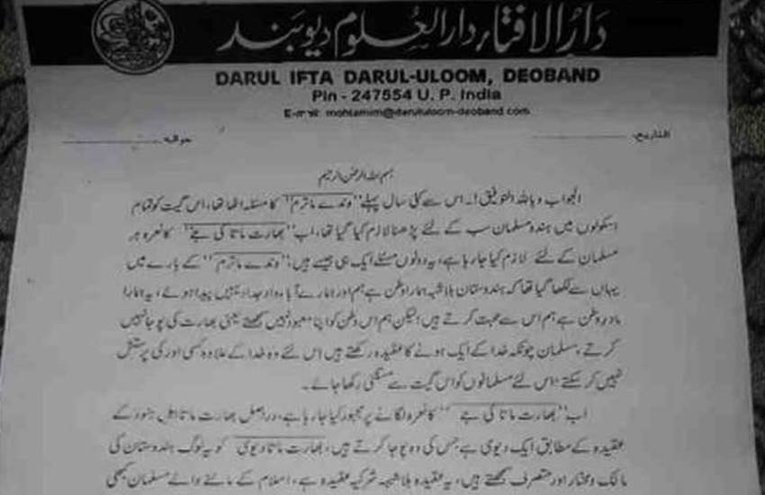 دارُالافتاء دارالعلوم دیوبند
DARUL IFTA DARUL-ULOOM, DEOBAND
Pin - 247554 U. P. India
E-mail: mohtamim@darululoom-deoband.com
التاريخ: حوالہ
بسم اللہ الرحمٰن الرحیم
الجواب وباللہ التوفیق!۔ اس سے کئی سال پہلے "وندے ماترم" کا مسئلہ اٹھا تھا، اس گیت کو تمام
اسکولوں میں ہندو مسلمان سب کے لئے پڑھنا لازم کیا گیا تھا، اب "بھارت ماتا کی جے" کا نعرہ ہر
مسلمان کے لئے لازم کیا جا رہا ہے، یہ دونوں مسئلے ایک ہی جیسے ہیں، "وندے ماترم" کے بارے میں
یہاں سے لکھا گیا تھا کہ ہندوستان بلا شبہ ہمارا وطن ہے ہم اور ہمارے آباء و اجداد یہیں پیدا ہوئے، یہ ہمارا
مادر وطن ہے ہم اس سے محبت کرتے ہیں؛ لیکن ہم اس وطن کو اپنا معبود نہیں سمجھتے یعنی بھارت کی پوجا نہیں
کرتے، مسلمان چونکہ خدا کے ایک ہونے کا عقیدہ رکھتے ہیں اس لئے وہ خدا کے علاوہ کسی اور کی پرستش
نہیں کر سکتے؛ اس لئے مسلمانوں کو اس گیت سے مستثنیٰ رکھا جائے۔
اب "بھارت ماتا کی جے" کا نعرہ لگانے پر مجبور کیا جا رہا ہے، دراصل بھارت ماتا اہل ہنود کے
عقیدہ کے مطابق ایک دیوی ہے جس کی وہ پوجا کرتے ہیں، بھارت ماتا دیوی کو یہ لوگ ہندوستان کی
مالک و مختار اور متصرف سمجھتے ہیں، یہ عقیدہ بلا شبہ شرکیہ عقیدہ ہے، اسلام کے ماننے والے مسلمان کبھی